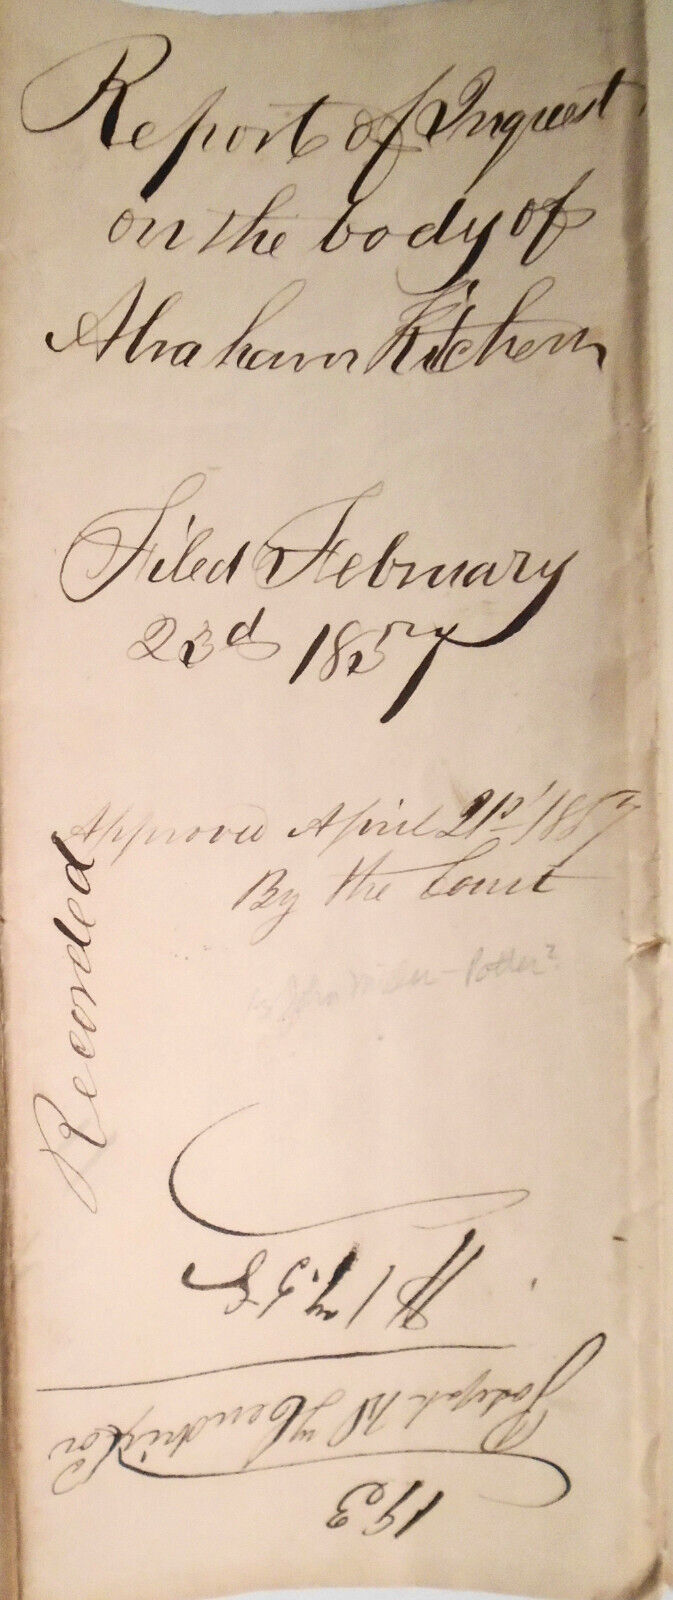 Report of Inquest
on the body of
Abraham Kitchen
Filed February
23d 1857
Approved April 21st 1857
By the Court
Recorded
John Potter?
193
Hendrix
$17.58